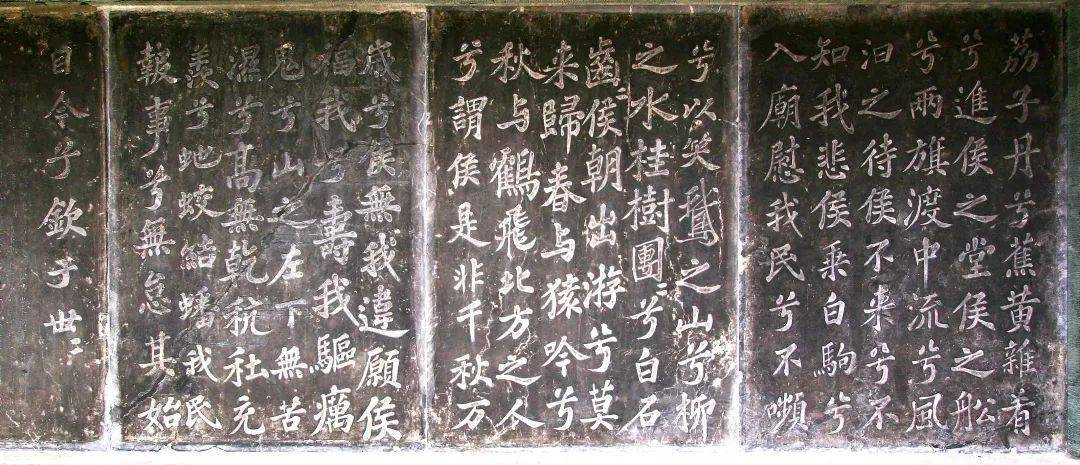 荔子丹兮蕉黄雜肴
兮進侯之堂侯之船
兮兩旗渡中流兮風
汩之待侯不来兮不
知我悲侯乘白駒兮
入廟慰我民兮不嚬
兮以笑鵝之山兮柳
之水桂樹團〻兮白石
齒〻侯朝出游兮莫
来歸春与猿吟兮
秋与鶴飛北方之人
兮謂侯是非千秋万
歲兮侯無我違願侯
福我兮壽我驅癘
鬼兮山之左下無苦
濕兮高無乾秔充
羨兮虵蛟結蟠我民
報事兮無怠其始
自今兮欽于世〻